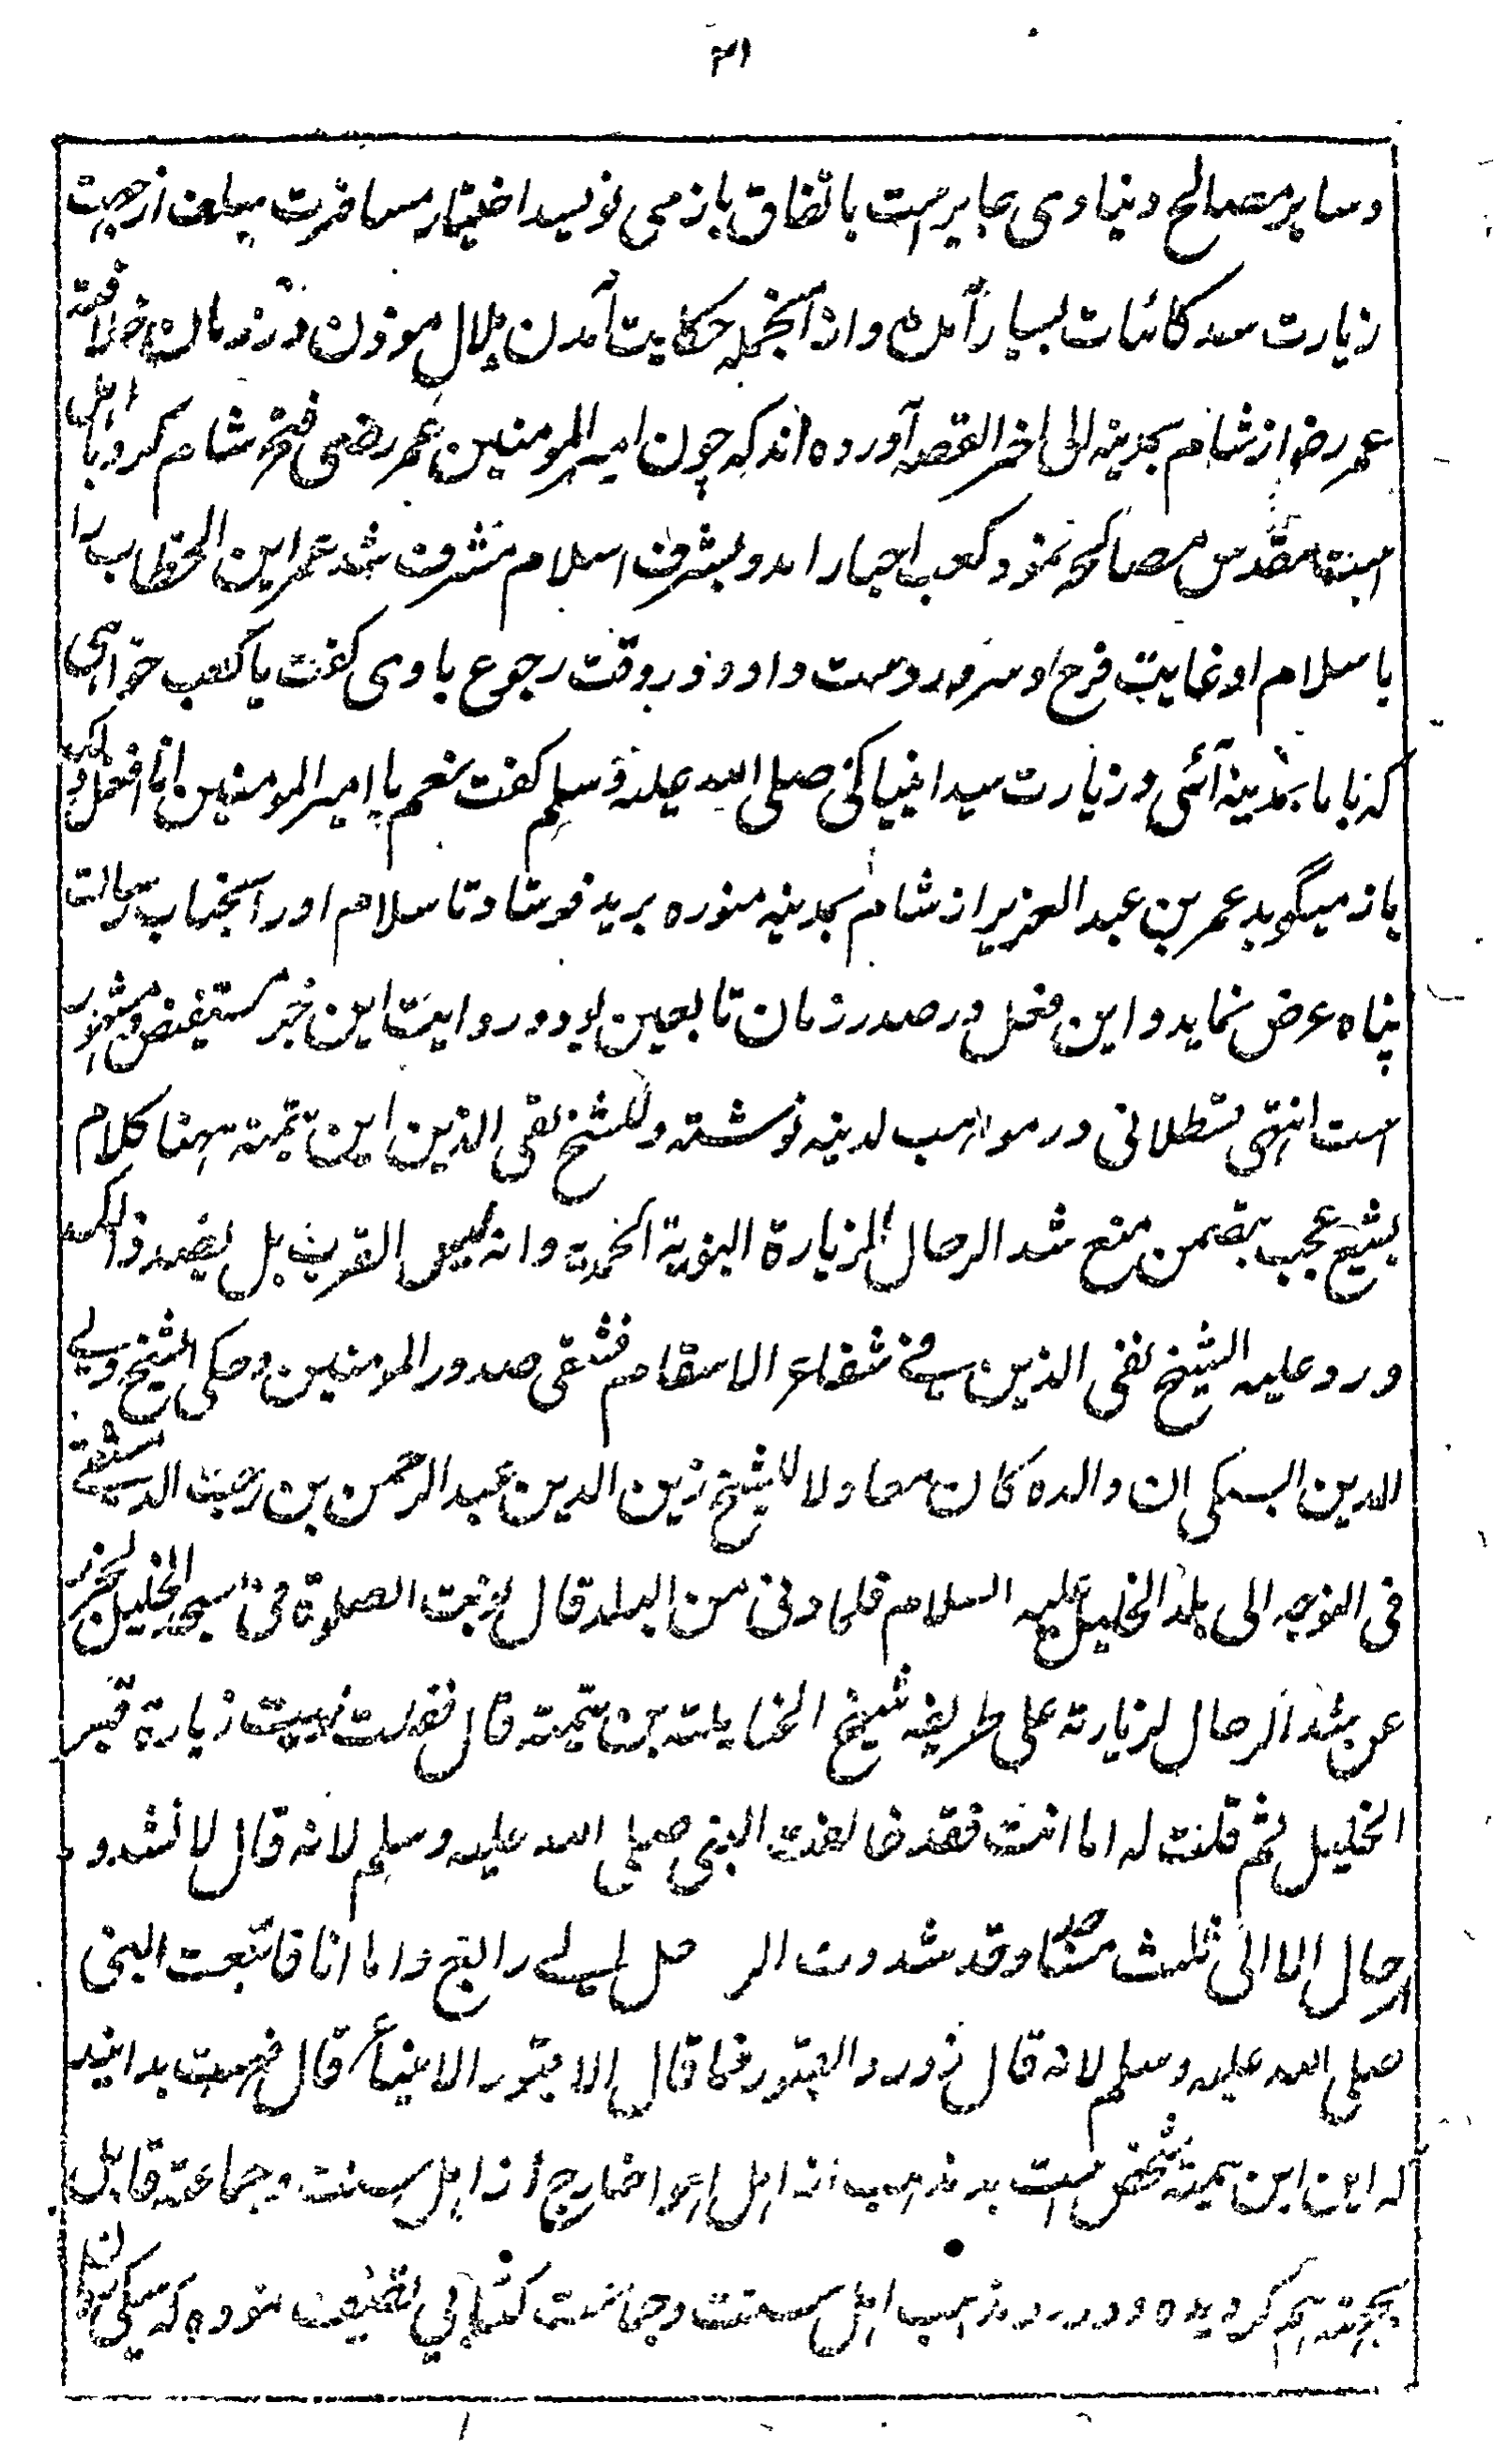 ۳۱
وسایر مصالح دنیاوی جایز است باتفاق باز می نویسد اختیار مسافرت سلف از جهت
زیارت سید کائنات بسیار آمده وازانجمله حکایت آمدن بلال موذن در زمان خلافت
عمر رض از شام بمدینه الی اخر القصه آورده اند که چون امیر المومنین عمر رضی فتح شام کرد و با اهل
بیت مقدس مصالحه نمود کعب احبار امد و بشرف اسلام مشرف شد عمر ابن الخطاب را
باسلام او غایت فرح و سرور دست داد و در وقت رجوع با وی کفت یا کعب خواهی
که با ما بمدینه آئی و زیارت سید انبیا کنی صلی الله علیه و سلم کفت نعم یا امیر المومنین انا افعل ذلک
باز میگوید عمر بن عبد العزیز از شام بمدینه منوره برید فرستاد تا سلام او را بجناب رسالت
پناه عرض نماید و این فعل در صدر زمان تابعین بود و روایت این خبر مستفیض و مشهور
است انتهی قسطلانی در مواهب لدنیه نوشته وللشیخ تقی الدین ابن تیمیة ههنا کلام
بشیع عجیب یتضمن منع شد الرحال للزیارة النبویة المحمدیه وانه لیس القرب بل بضد ذالک
ورد علیه الشیخ تقی الدین سبکی فی شفاء الاسقام فشفی صدور المومنین وحکی الشیخ ولی
الدین السبکی ان والده کان معادلا للشیخ زین الدین عبد الرحمن بن رجب الدمشقی
فی التوجه الی بلد الخلیل علیه السلام فلما دنی من البلد قال نویت الصلوة فی مسجد الخلیل لیحترز
عن شد الرحال لزیارته علی طریقه شیخ الحنابلته بن تیمته قال فقلت نویت زیارة قبر
الخلیل ثم قلت له اما انت فقد خالفت النبی صلی الله علیه وسلم لانه قال لا تشدو
الرحال الا الی ثلث مساجد وقد شددت الرحل الی رابع واما انا فاتبعت النبی
صلی الله علیه وسلم لانه قال زورو القبور فما قال الا قبور الانبیاء قال فبهت بدانید
که این ابن تیمیة شخصی است بد مذهب از اهل اهوا خارج از اهل سنت وجماعته قائل
بجهته هم کردیده و در رد مذهب اهل سنت وجماعت کتابی تصنیف نموده که سبکی